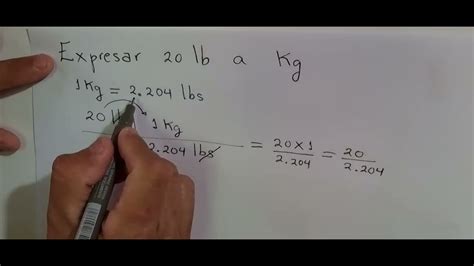 Expresar 20 lb a Kg
1Kg = 2.204 lbs
20 1Kg
2.204 lbs = 20x1 / 2.204 = 20 / 2.204